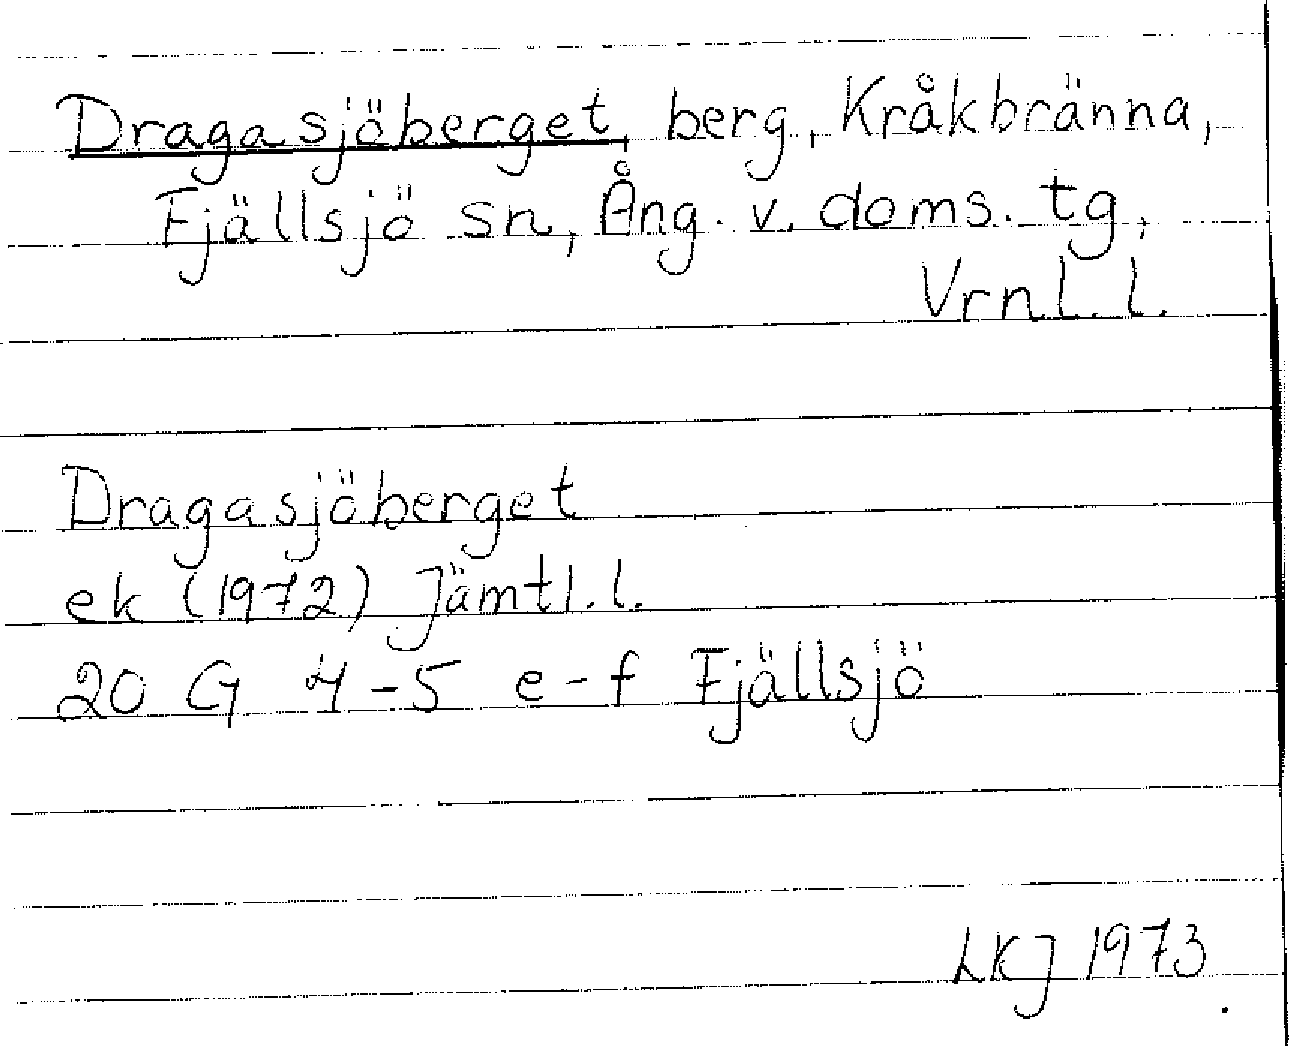 Dragasjöberget, berg, Kråkbränna,
Fjällsjö sn, Ång. v. doms. tg,
Vrnl. l.
Dragasjöberget
ek (1972) Jämtl. l.
20 G 4-5 e-f Fjällsjö
LKJ 1973.